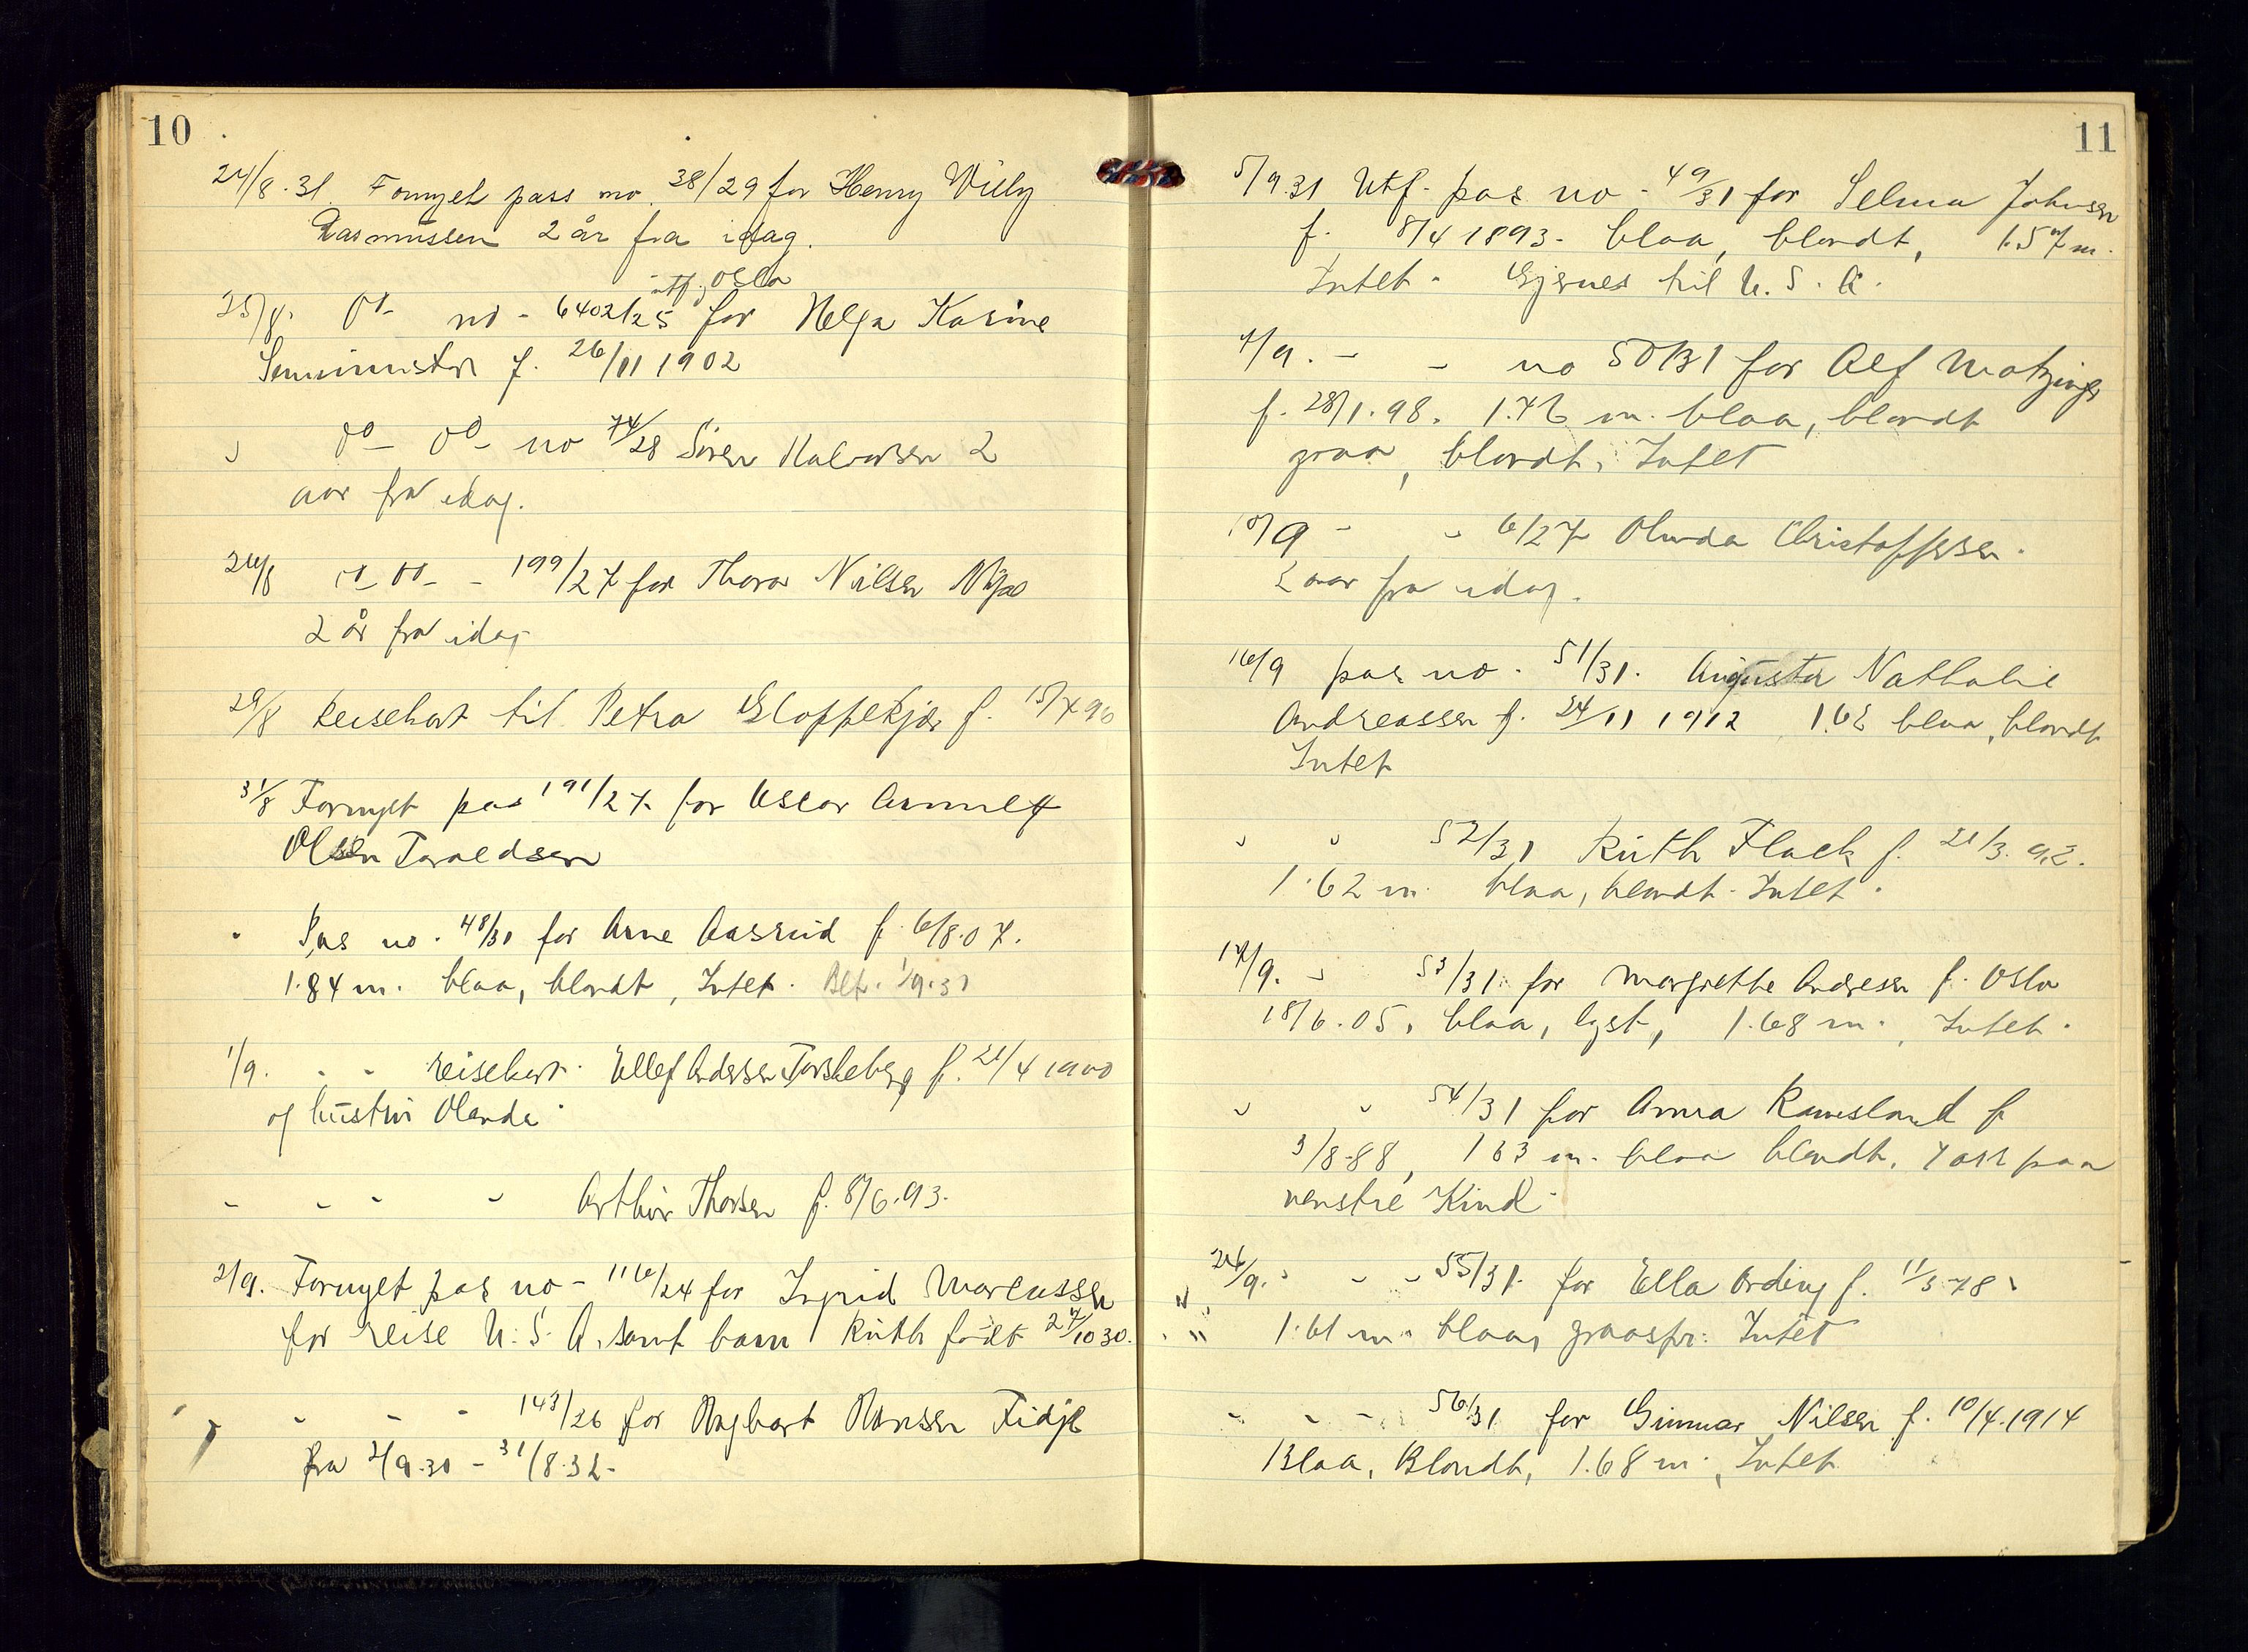 10
24/8.31. Fornyet pass no. 38/29 for Henry Willy
Rasmussen 2 år fra idag.
utf. Oslo
25/8. do- no - 6402/25 for Helga Karine
f. 26/11 1902
" do- do- no 74/28 Søren Halvorsen 2
aar fra idag.
26/8 do- do- - 199/27 for Thora Nilsen
2 år fra idag
29/8 Reisekort til Petra Gloppekjær f. 15/7 96
31/8 Fornyet pas 191/27. for Oscar
Olsen Taraldsen
" Pas no. 48/31 for Arne Aasrud f. 6/8.07.
1.84 m. blaa, blondt, Intet. Blf. 1/9.31
1/9. - - reisekort. Ellef Andersen Torskeberg f. 21/4 1900
og hustru Olanda.
- - - - Arthur Thorsen f. 8/6.93.
2/9. Fornyet pas no - 116/24 for Ingrid Marcussen
for reise U.S.A. samt barn Ruth født 27/10 30.
- - - 143/26 for Dagbart Hansen Fidje
fra 2/9.30 - 31/8.32.
11
5/9.31 Utf. pas no - 49/31 for Selma Johnsen
f. 8/4 1893. blaa, blondt, 1.57 m.
Intet - Gjernes til U.S.A.
7/9. - - no 50/31 for Alf
f. 28/1.98. 1.76 m. blaa, blondt
graa, blondt, Intet
10/9 - " 6/27 Olunda Christoffersen.
2 aar fra idag.
16/9 pas no. 51/31. Augusta Nathalie
Andreassen f. 24/11 1912 1.62 blaa, blondt
Intet
" " 52/31 Ruth Flack f. 21/3. 92.
1.62 m. blaa, blondt - Intet.
17/9. " 53/31. for Margrethe Andresen f. Oslo
18/6.05, blaa, lyst, 1.68 m., Intet.
" " 54/31 for Anna Ramsland f
3/8-88, 163 m. blaa blondt. paa
venstre Kind.
26/9. " - - 55/31. for Ella Ording f. 11/3-78.
" 1.61 m. blaa, graaspr. Intet
- - - 56/31 for Gunnar Nilsen f. 10/4.1914
Blaa, Blondt, 1.68 m., Intet